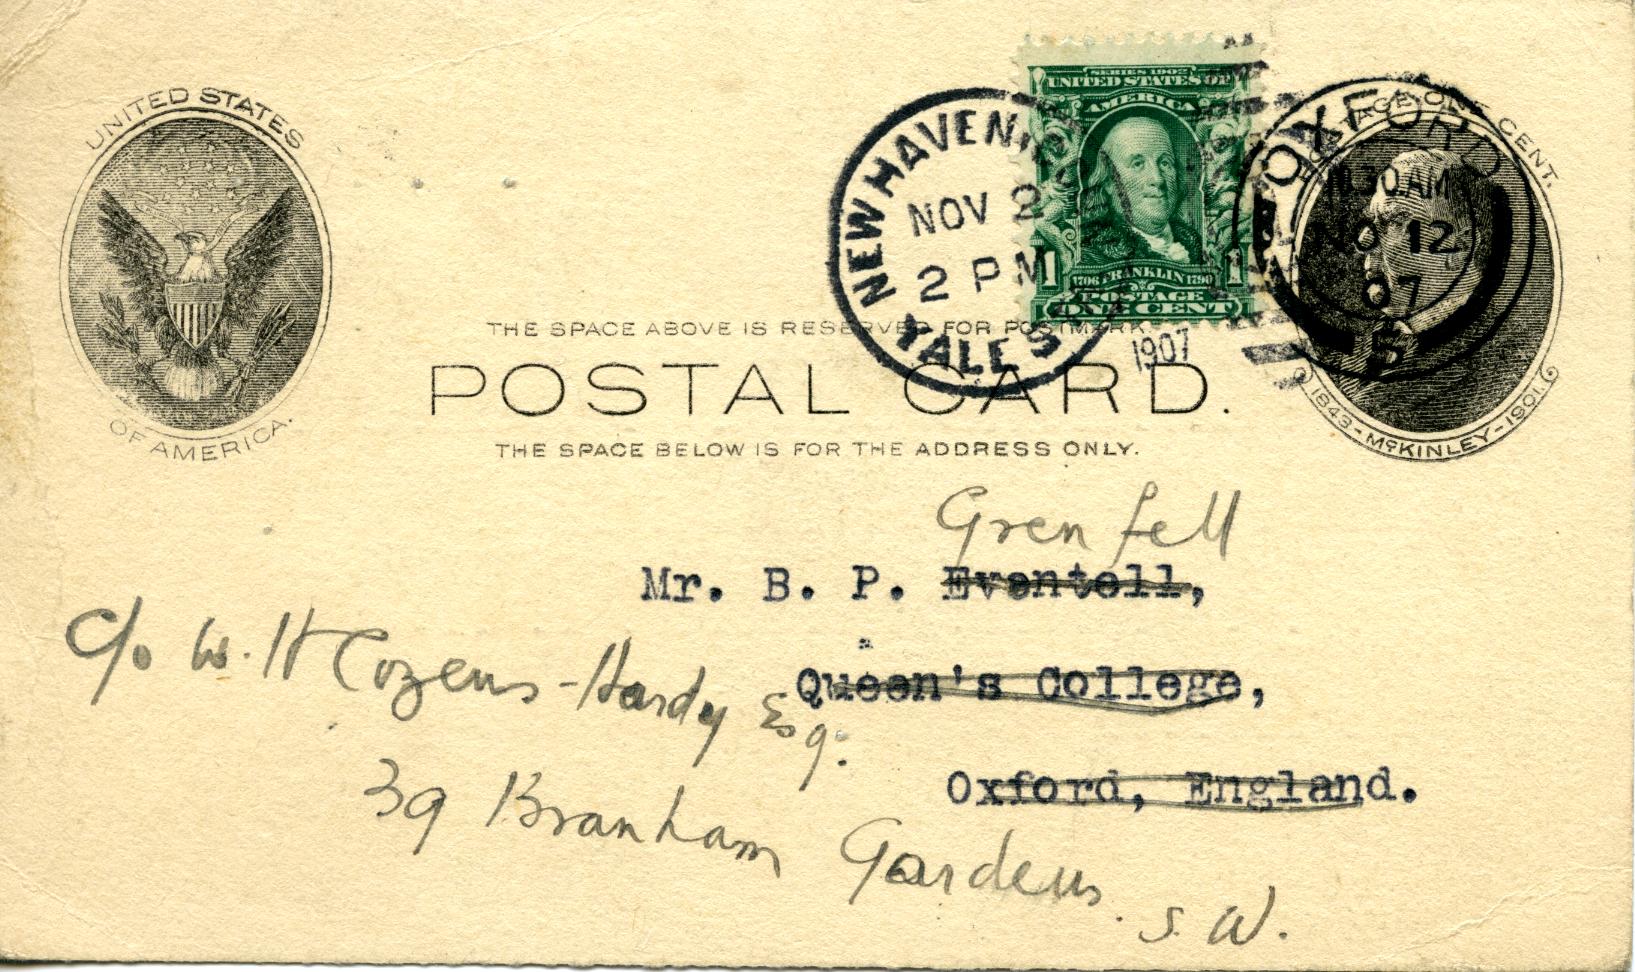 UNITED STATES
OF AMERICA.
SERIES 1902
UNITED STATES OF
AMERICA
1706 FRANKLIN 1790
1 1
POSTAGE
ONE CENT
NEW HAVEN
NOV 2
2 PM
YALE S
1907
POSTAGE ONE CENT.
1843-McKINLEY-1901.
OXFORD
.30 AM
NO 12
07
5
THE SPACE ABOVE IS RESERVED FOR POSTMARK.
POSTAL CARD.
THE SPACE BELOW IS FOR THE ADDRESS ONLY.
Grenfell
Mr. B. P. Eventell,
Queen's College,
Oxford, England.
c/o W. H Cozens-Hardy Esq.
39 Branham Gardens
S. W.